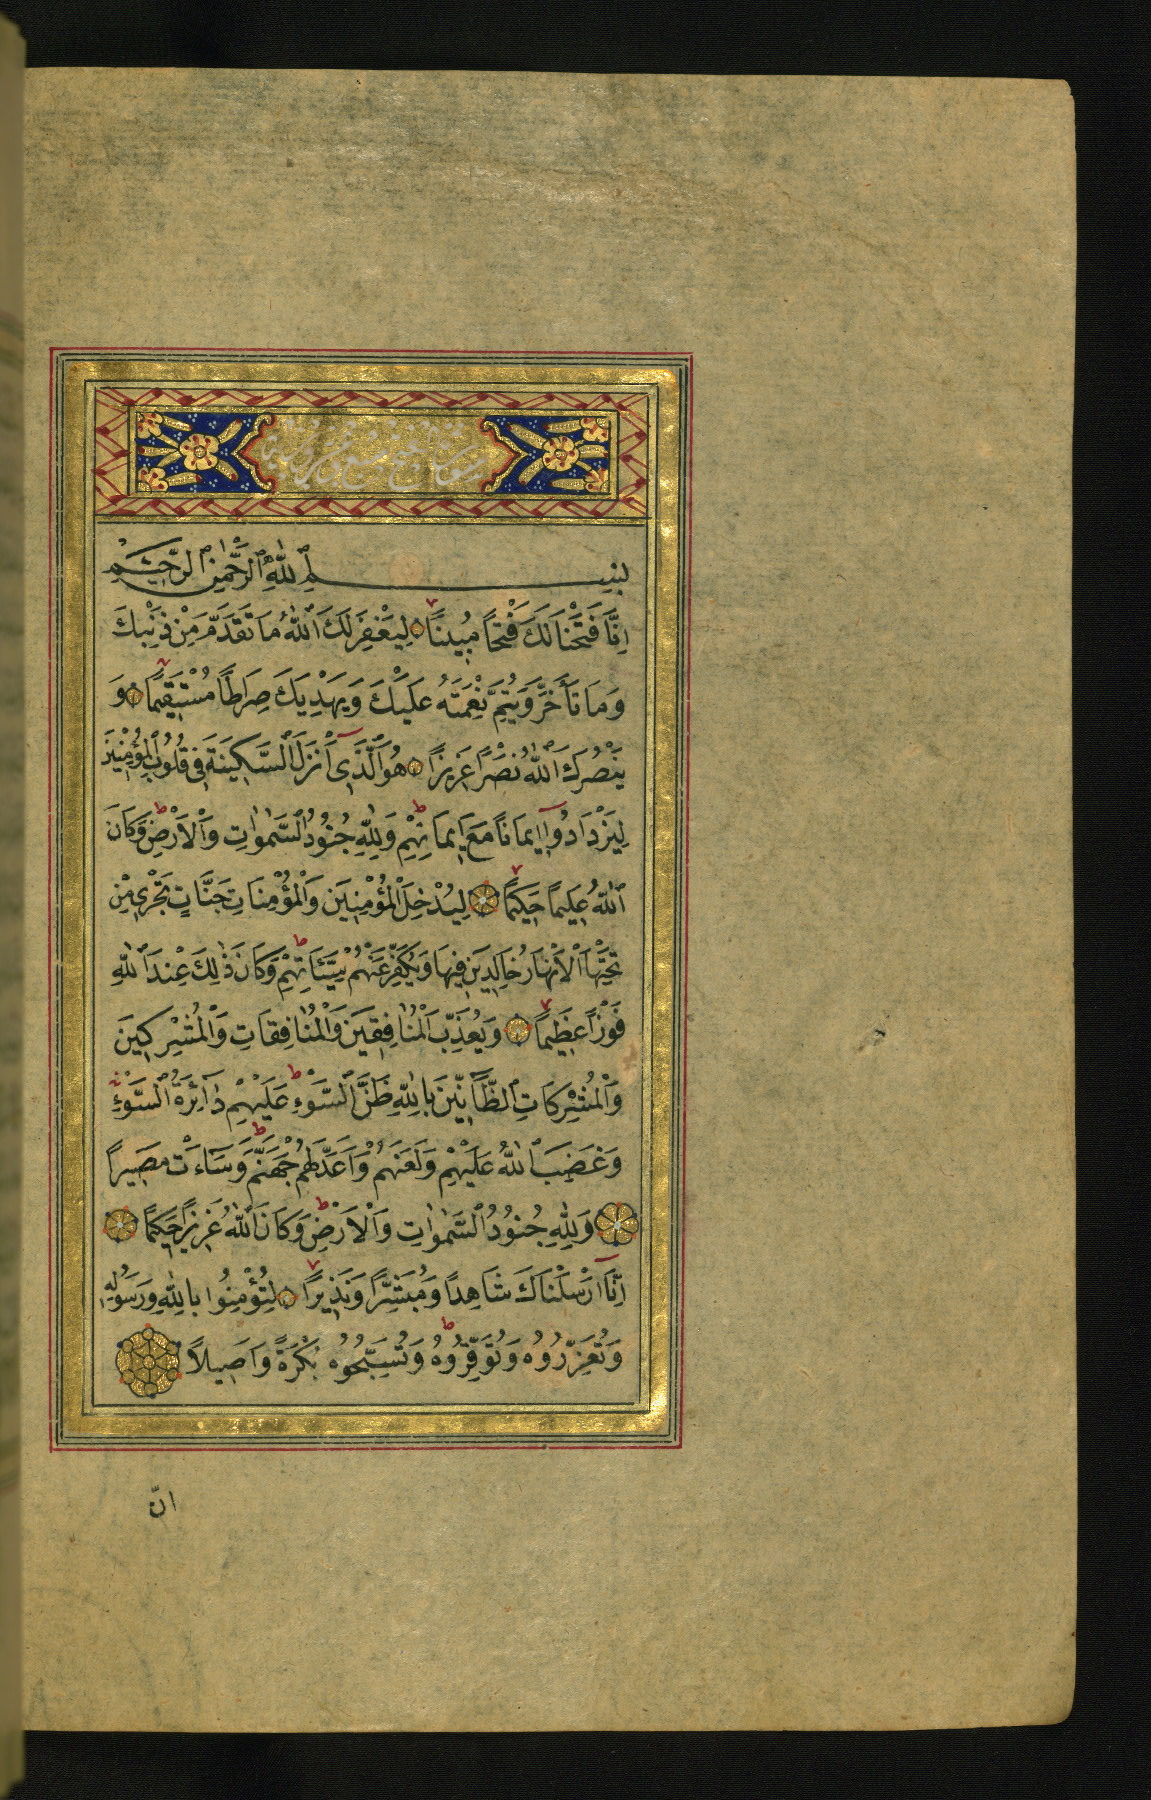 سورة الفتح تسع وعشرون آية
بِسْمِ اللّٰهِ الرَّحْمٰنِ الرَّحِيمِ
اِنَّا فَتَحْنَا لَكَ فَتْحًا مُبِينًا لِيَغْفِرَ لَكَ اللّٰهُ مَا تَقَدَّمَ مِنْ ذَنْبِكَ
وَمَا تَأَخَّرَ وَيُتِمَّ نِعْمَتَهُ عَلَيْكَ وَيَهْدِيَكَ صِرَاطًا مُسْتَقِيمًا وَ
يَنْصُرَكَ اللّٰهُ نَصْرًا عَزِيزًا هُوَ الَّذِى اَنْزَلَ السَّكِينَةَ فِى قُلُوبِ الْمُؤْمِنِينَ
لِيَزْدَادُوا اِيمَانًا مَعَ اِيمَانِهِمْ وَلِلّٰهِ جُنُودُ السَّمٰوَاتِ وَالْاَرْضِ وَكَانَ
اللّٰهُ عَلِيمًا حَكِيمًا لِيُدْخِلَ الْمُؤْمِنِينَ وَالْمُؤْمِنَاتِ جَنَّاتٍ تَجْرِى مِنْ
تَحْتِهَا الْاَنْهَارُ خَالِدِينَ فِيهَا وَيُكَفِّرَ عَنْهُمْ سَيِّئَاتِهِمْ وَكَانَ ذٰلِكَ عِنْدَ اللّٰهِ
فَوْزًا عَظِيمًا وَيُعَذِّبَ الْمُنَافِقِينَ وَالْمُنَافِقَاتِ وَالْمُشْرِكِينَ
وَالْمُشْرِكَاتِ الظَّانِّينَ بِاللّٰهِ ظَنَّ السَّوْءِ عَلَيْهِمْ دَائِرَةُ السَّوْءِ
وَغَضِبَ اللّٰهُ عَلَيْهِمْ وَلَعَنَهُمْ وَاَعَدَّ لَهُمْ جَهَنَّمَ وَسَاءَتْ مَصِيرًا
وَلِلّٰهِ جُنُودُ السَّمٰوَاتِ وَالْاَرْضِ وَكَانَ اللّٰهُ عَزِيزًا حَكِيمًا
اِنَّا اَرْسَلْنَاكَ شَاهِدًا وَمُبَشِّرًا وَنَذِيرًا لِتُؤْمِنُوا بِاللّٰهِ وَرَسُولِهِ
وَتُعَزِّرُوهُ وَتُوَقِّرُوهُ وَتُسَبِّحُوهُ بُكْرَةً وَاَصِيلًا
انّ